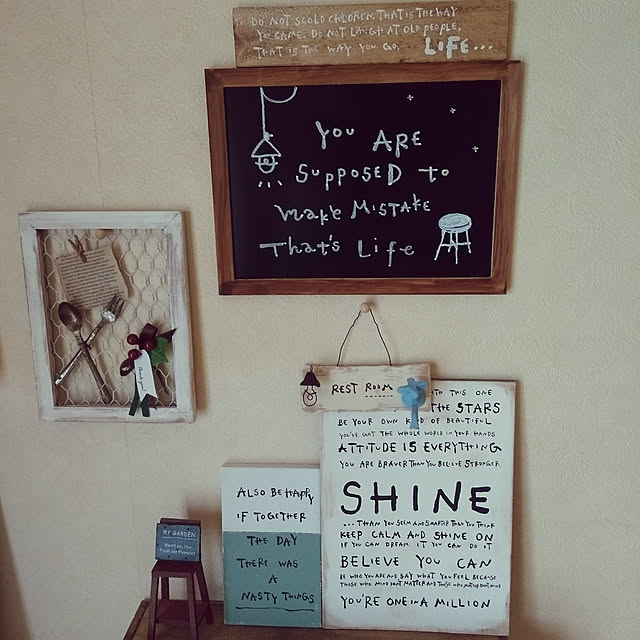 DO NOT SCOLD CHILDREN. THAT IS THE WAY
YOU CAME. DO NOT LAUGH AT OLD PEOPLE,
THAT IS THE WAY YOU GO. LIFE...
YOU ARE
SUPPOSED to
make MISTAKE
That's Life
REST ROOM
WITH THIS ONE
THE STARS
BE YOUR OWN KIND OF BEAUTIFUL
YOU'VE GOT THE WHOLE WORLD IN YOUR HANDS
ATTITUDE IS EVERYTHING
YOU ARE BRAVER THAN YOU BELIEVE STRONGER
SHINE
...THAN YOU SEEM AND SMARTER THAN YOU THINK
KEEP CALM AND SHINE ON
IF YOU CAN DREAM IT YOU CAN DO IT
BELIEVE YOU CAN
BE WHO YOU ARE AND SAY WHAT YOU FEEL BECAUSE
THOSE WHO MIND DON'T MATTER AND THOSE WHO MATTER DON'T MIND
YOU'RE ONE IN A MILLION
ALSO BE HAPPY
IF TOGETHER
THE DAY
THERE WAS
A
NASTY THINGS
MY GARDEN
Thank you